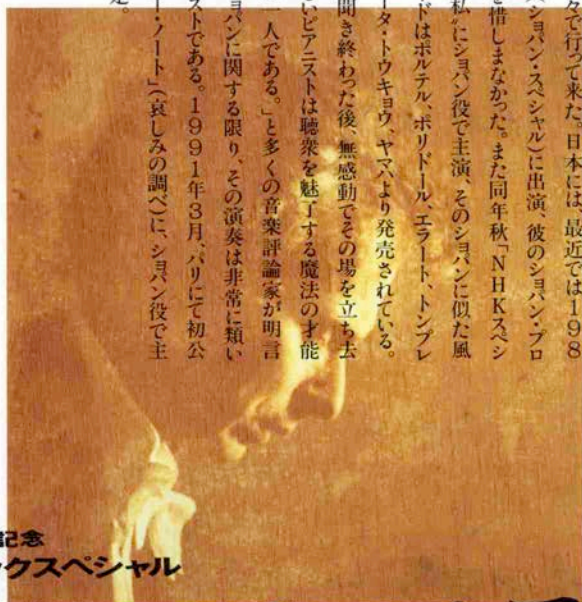 々で行って来た。日本には、最近では198
ショパン・スペシャル)に出演、彼のショパン・プロ
を惜しまなかった。また同年秋「NHKスペシ
私”にショパン役で主演、そのショパンに似た風
ドはポルテル、ポリドール、エラート、トンプレ
ータ・トウキョウ、ヤマハより発売されている。
聞き終わった後、無感動でその場を立ち去
いピアニストは聴衆を魅了する魔法の才能
一人である。」と多くの音楽評論家が明言
ョパンに関する限り、その演奏は非常に類い
ストである。1991年3月、パリにて初公
ー・ノート」(哀しみの調べ)に、ショパン役で主
定。
記念
ックスペシャル